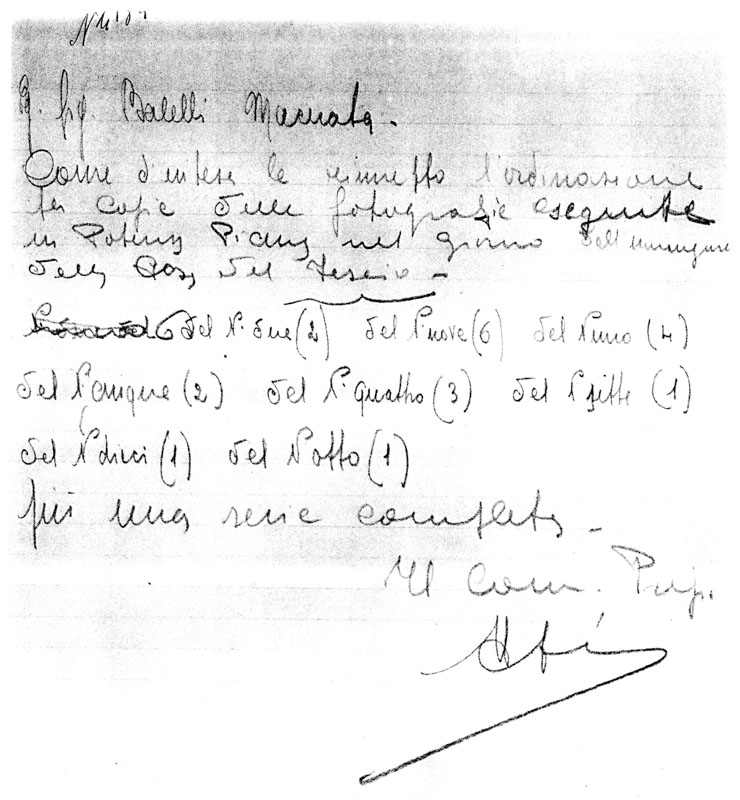 Sig. Balelli Macerata.
Come d'intesa le rimetto l'ordinazione
per copie delle fotografie eseguite
in Potenza Picena nel giorno dell'inaugura
della Casa del Fascio -
del N. due (2) del N nove (6) del N uno (4)
del N. cinque (2) del N. quattro (3) del N sette (1)
del N dieci (1) del N otto (1)
più una serie completa -
Il Com. Pref.